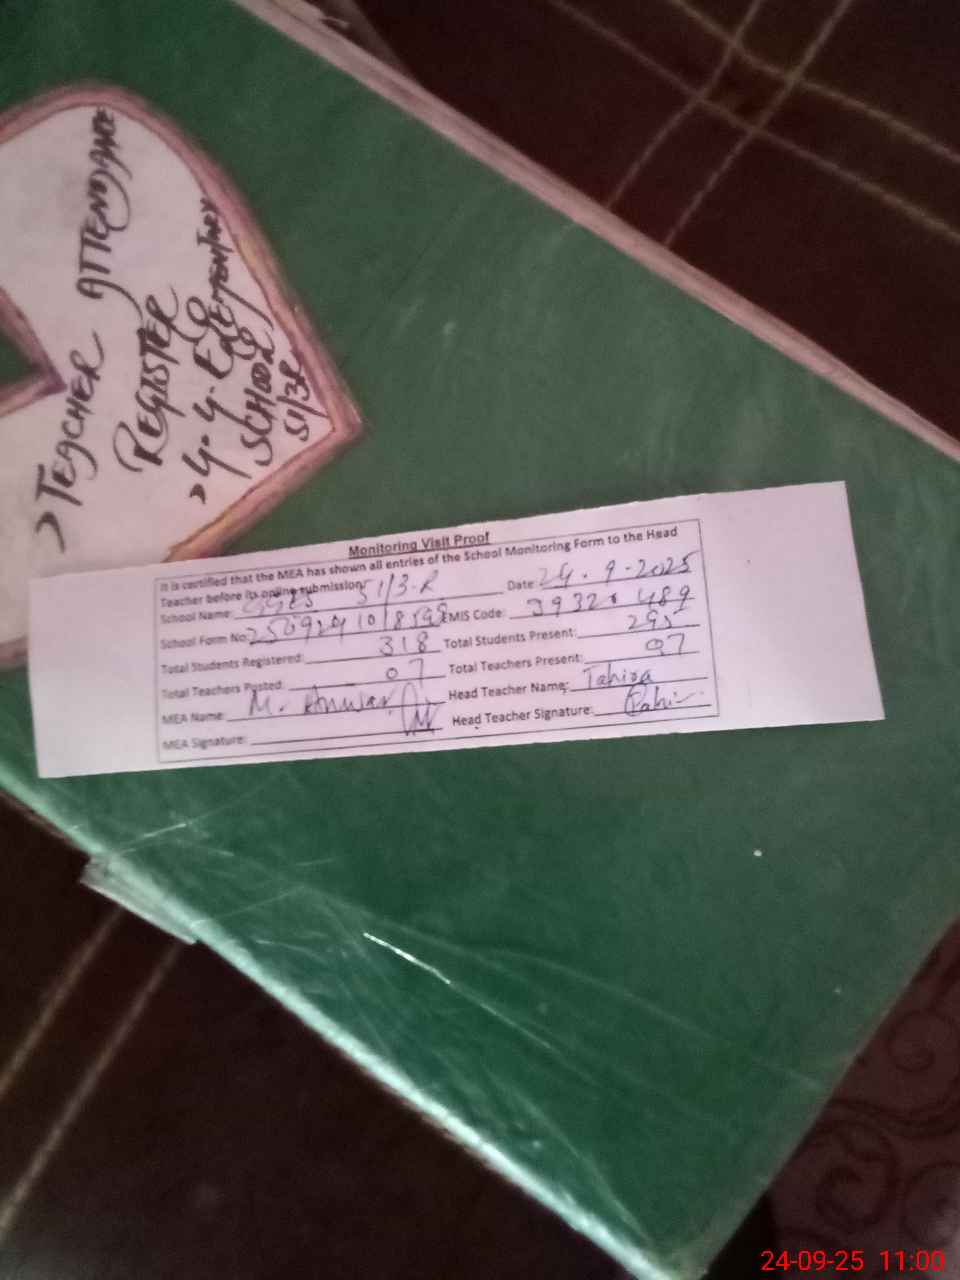 >TEACHER ATTENDANCE
REGISTER
>G.G.ES
ELEMENTARY
SCHOOL
51/3R
Monitoring Visit Proof
It is certified that the MEA has shown all entries of the School Monitoring Form to the Head
Teacher before its online submission.
School Name: GGES 51/3-R Date: 24.9.2025
School Form No: EMIS Code: 39320489
Total Students Registered: 318 Total Students Present: 295
Total Teachers Posted: 07 Total Teachers Present: 07
MEA Name: M. Anwar Head Teacher Name: Tahira
MEA Signature: Head Teacher Signature:
24-09-25 11:00